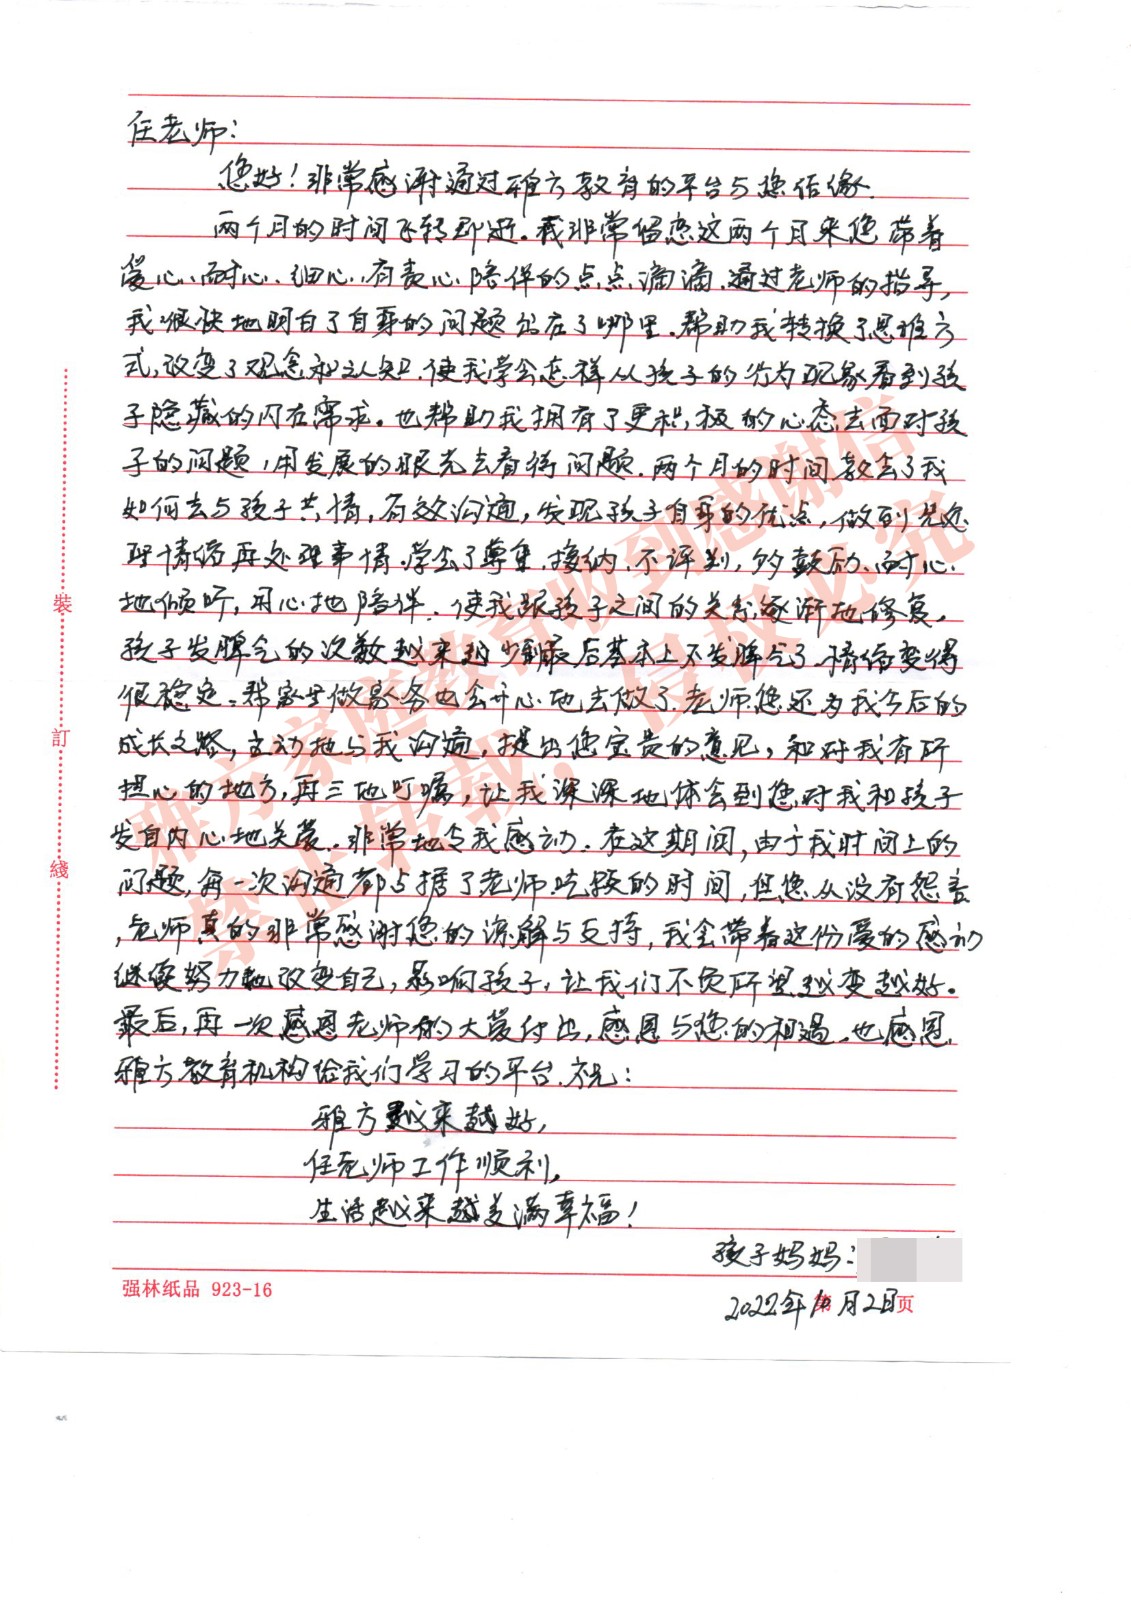 任老师：
您好！非常感谢通过雅方教育的平台与您结缘.
两个月的时间飞转即逝。我非常留恋这两个月来您带着
爱心、耐心、细心、有责心陪伴的点点滴滴.通过老师的指导，
我很快地明白了自身的问题出在了哪里.帮助我转换了思维方
式，改变了观念和认知.使我学会怎样从孩子的行为现象看到孩
子隐藏的内在需求。也帮助我拥有了更积极的心态去面对孩
子的问题，用发展的眼光去看待问题.两个月的时间教会了我
如何去与孩子共情，有效沟通，发现孩子自身的优点，做到先处
理情绪再处理事情.学会了尊重、接纳、不评判，多鼓励、耐心
地倾听，用心地陪伴.使我跟孩子之间的关系逐渐地修复。
孩子发脾气的次数越来越少到最后基本上不发脾气了.情绪变得
很稳定。帮家里做家务也会开心地去做了.老师您还为我今后的
成长之路，主动地与我沟通，提出您宝贵的意见，和对我有所
担心的地方，再三地叮嘱，让我深深地体会到您对我和孩子
发自内心地关爱.非常地令我感动.在这期间，由于我时间上的
问题，每一次沟通都占据了老师吃饭的时间，但您从没有怨言
，老师真的非常感谢您的谅解与支持，我会带着这份爱的感动
继续努力地改变自己，影响孩子，让我们不负所望越变越好。
最后，再一次感恩老师的大爱付出，感恩与您的相遇.也感恩
雅方教育机构给我们学习的平台.祝：
雅方越来越好，
任老师工作顺利，
生活越来越美满幸福！
孩子妈妈：
2022年10月2日
强林纸品 923-16
第 页
裝
訂
綫
雅方家庭教育收到感谢信
禁止转载，侵权必究